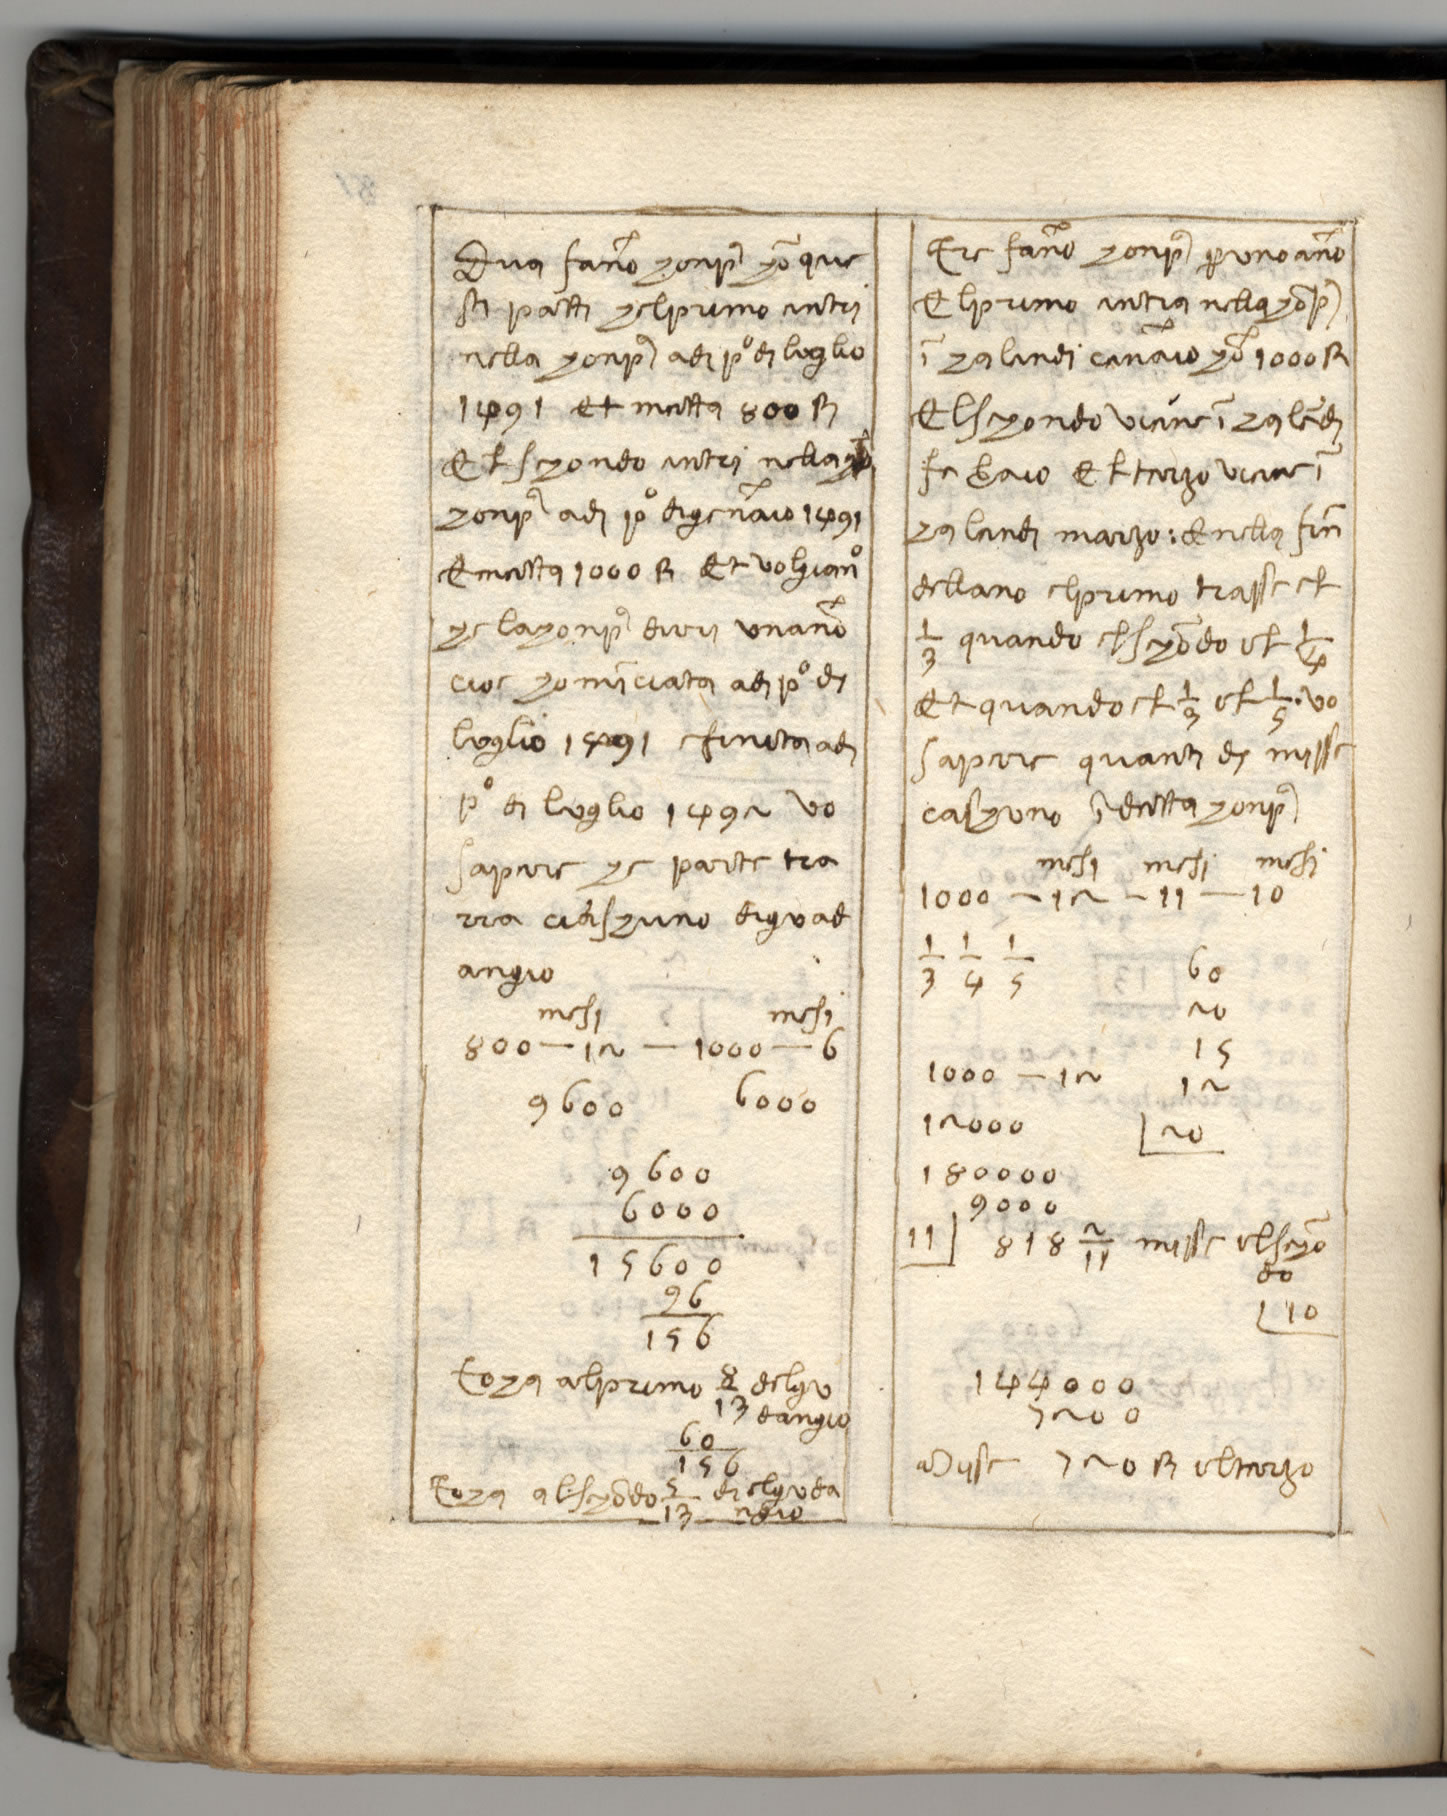 Dua fanno chonpa chō que
sti patti chelprimo intri
nella chonpa adi pº di luglio
1491 et metta 800 ff
El sechondo intri nella
chonpa adi pº digennaio 1491
Emetta 1000 ff Et voglianº
che lachonpa duri unanno
cioe chominciata adi pº di
luglio 1491 efinita adi
pº di luglio 1492 vo
sapere che parte tra
rra ciaschuno diguad
angio
mesi mesi
800 — 12 — 1000 — 6
9600 6000
9600
6000
15600
96
156
Tocha alprimo 8/13 delgu
dangio
60
156
Tocha alsechōdo 5/13 di elguda
ngio
Tre fanno chonpa per uno anno
Elprimo intra nellachōpa
ī chalendi Gennaio chō 1000 ff
Elsechondo viene ī chalēdi
febraio El terzo viene ī
chalendi marzo: Enella fin
dellano elprimo trasse el
1/3 quando elsechōdo el 1/4
Et quando el 1/3 el 1/5 vo
sapere quanti di misse
caschuno ī detta chonpa
mesi mesi mesi
1000 — 12 — 11 — 10
1/3 1/4 1/5 60
20
15
1000 — 12 12
12000 20
180000
9000
11 818 2/11 misse elsechō
do
10
144000
7200
Misse 720 ff elterzo